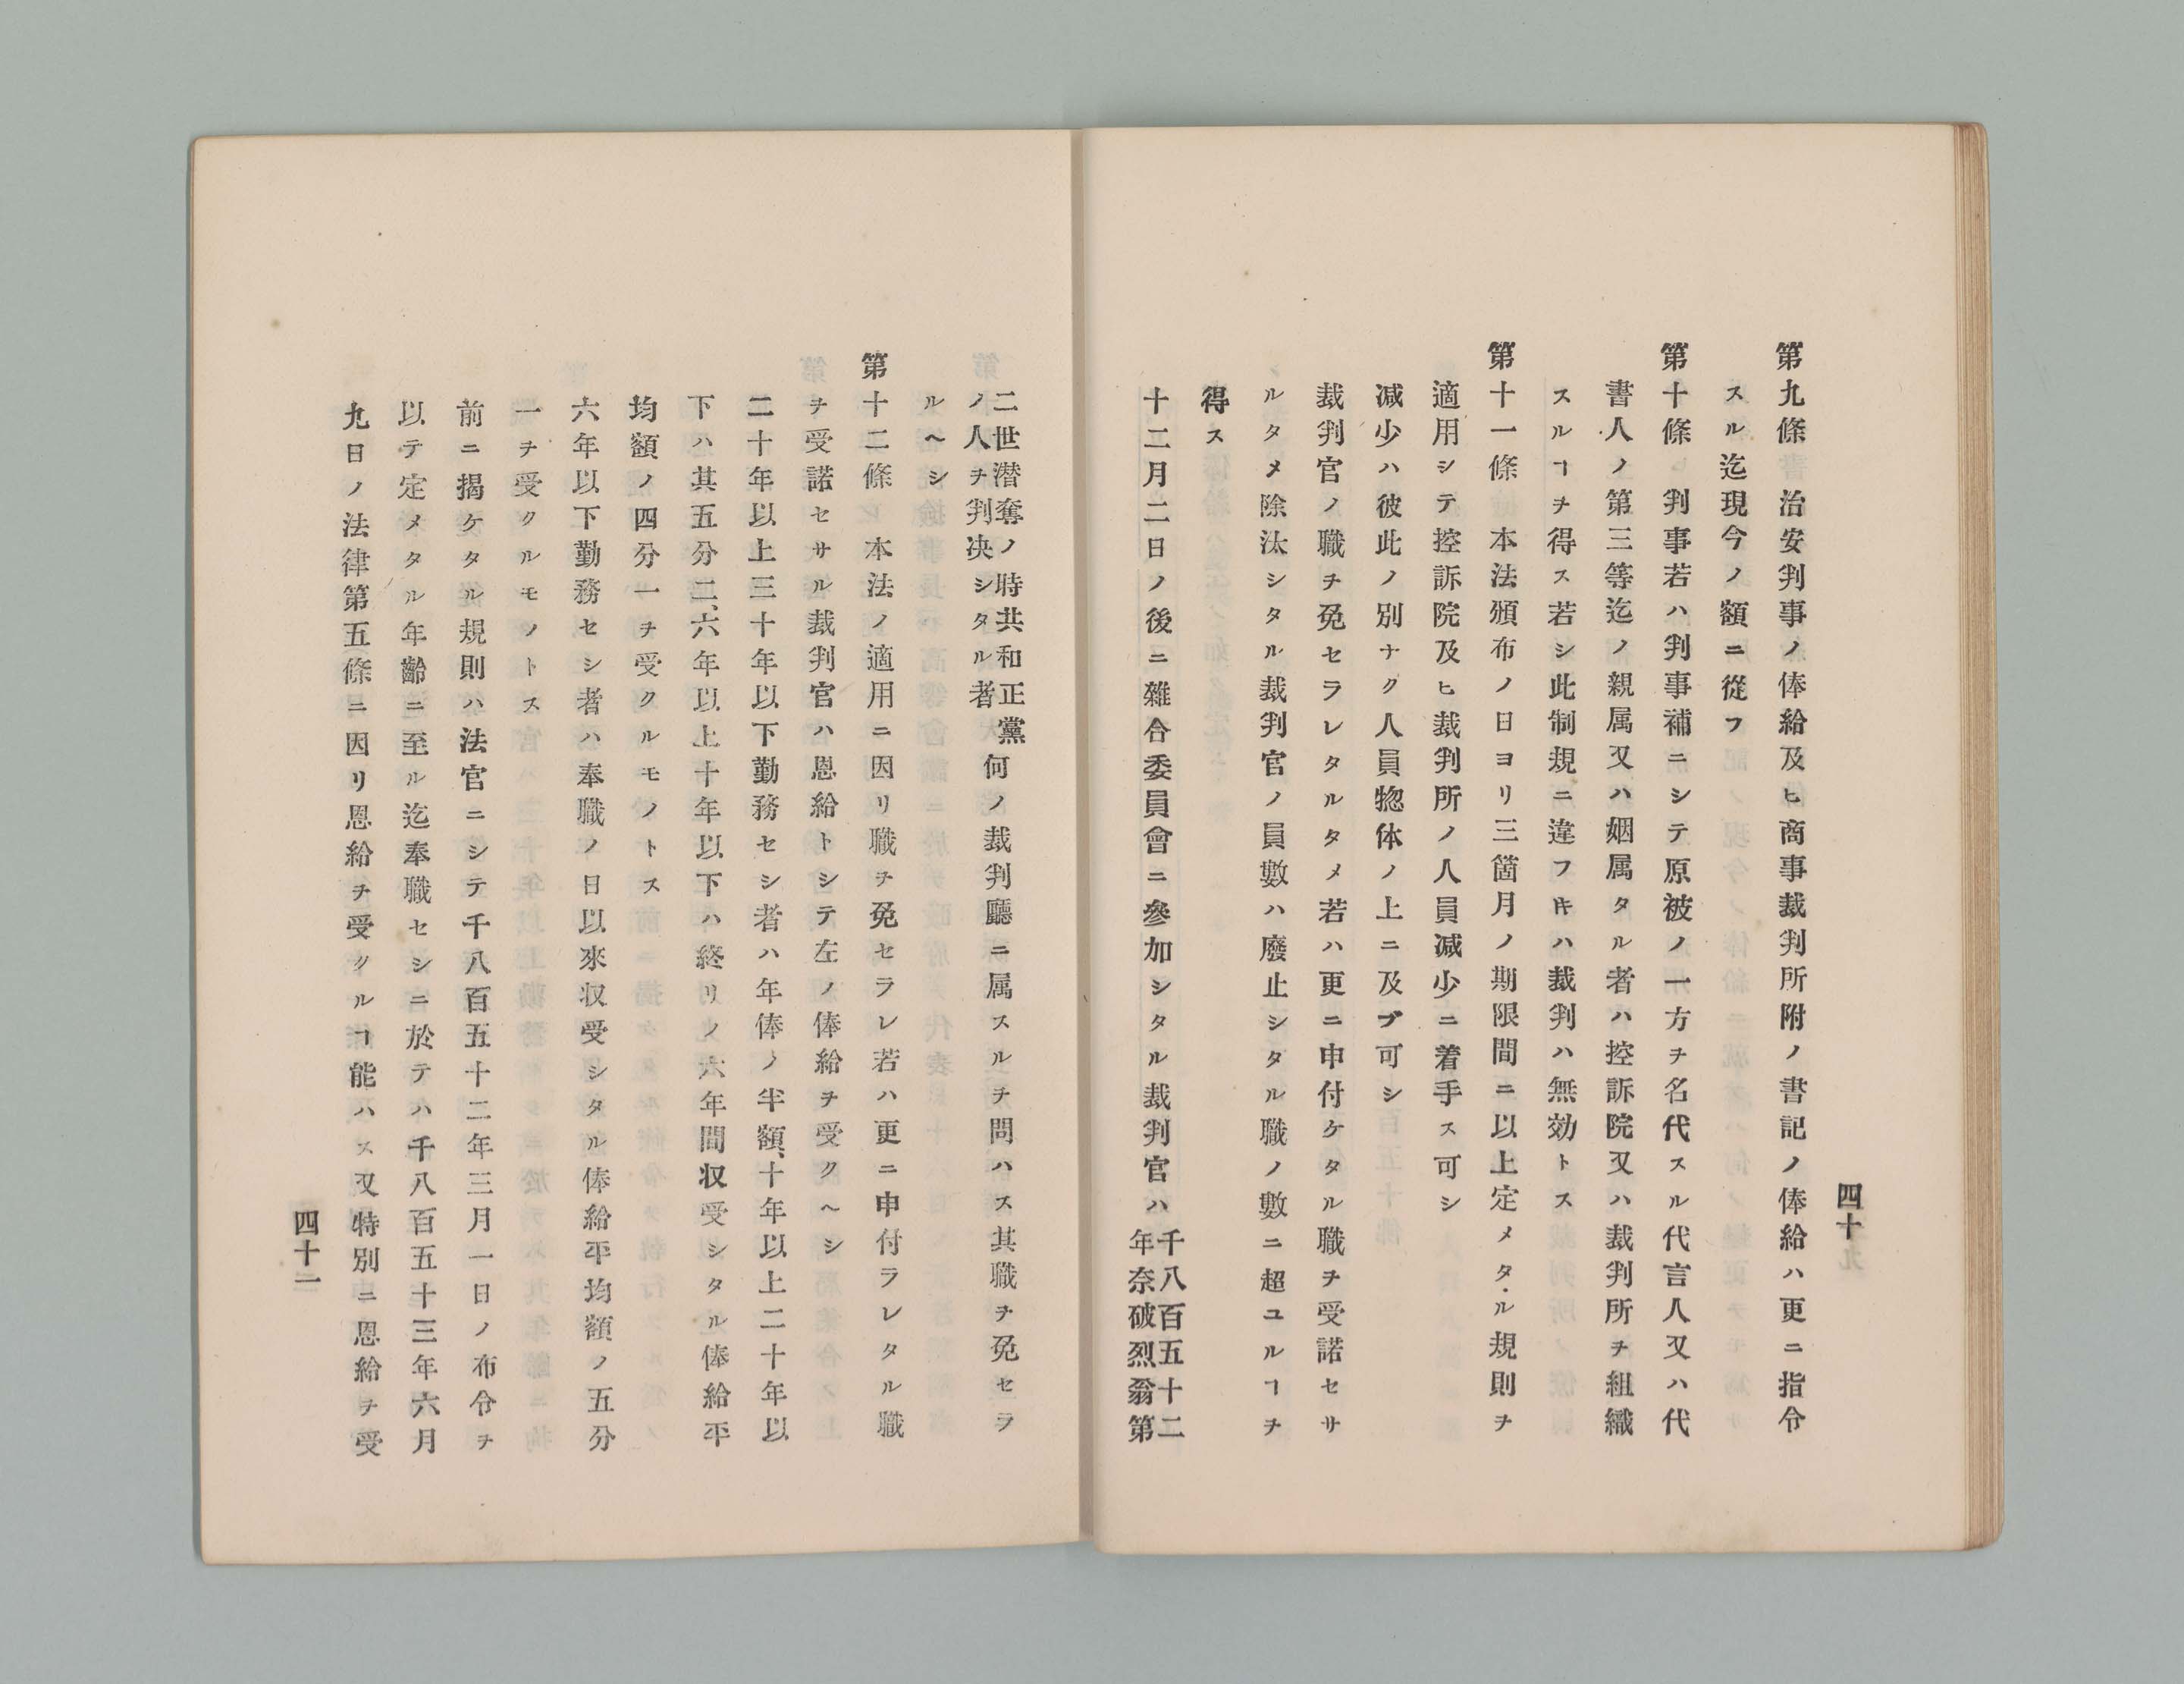 四十
第九條　治安判事ノ俸給及ヒ商事裁判所附ノ書記ノ俸給ハ更ニ指令
スル迄現今ノ額ニ從フ
第十條　判事若ハ判事補ニシテ原被ノ一方ヲ名代スル代言人又ハ代
書人ノ第三等迄ノ親属又ハ姻属タル者ハ控訴院又ハ裁判所ヲ組織
スルヿヲ得ス若シ此制規ニ違フ𪜈ハ裁判ハ無効トス
第十一條　本法頒布ノ日ヨリ三箇月ノ期限間ニ以上定メタル規則ヲ
適用シテ控訴院及ヒ裁判所ノ人員减少ニ着手ス可シ
减少ハ彼此ノ別ナク人員惣体ノ上ニ及ブ可シ
裁判官ノ職ヲ免セラレタルタメ若ハ更ニ申付ケタル職ヲ受諾セサ
ルタメ除汰シタル裁判官ノ員數ハ廢止シタル職ノ數ニ超ユルヿヲ
得ス
十二月二日ノ後ニ雜合委員會ニ參加シタル裁判官ハ千八百五十二
年奈破烈翁第
二世潜奪ノ時共和正黨
ノ人ヲ判决シタル者何ノ裁判廳ニ属スルヲ問ハス其職ヲ免セラ
ルヘシ
第十二條　本法ノ適用ニ因リ職ヲ免セラレ若ハ更ニ申付ラレタル職
ヲ受諾セサル裁判官ハ恩給トシテ左ノ俸給ヲ受クヘシ
二十年以上三十年以下勤務セシ者ハ年俸ノ半額、十年以上二十年以
下ハ其五分二、六年以上十年以下ハ終リノ六年間収受シタル俸給平
均額ノ四分一ヲ受クルモノトス
六年以下勤務セシ者ハ奉職ノ日以來収受シタル俸給平均額ノ五分
一ヲ受クルモノトス
前ニ揭ケタル規則ハ法官ニシテ千八百五十二年三月一日ノ布令ヲ
以テ定メタル年齡ニ至ル迄奉職セシニ於テハ千八百五十三年六月
九日ノ法律第五條ニ因リ恩給ヲ受クルヿ能ハス又特別ニ恩給ヲ受
四十一